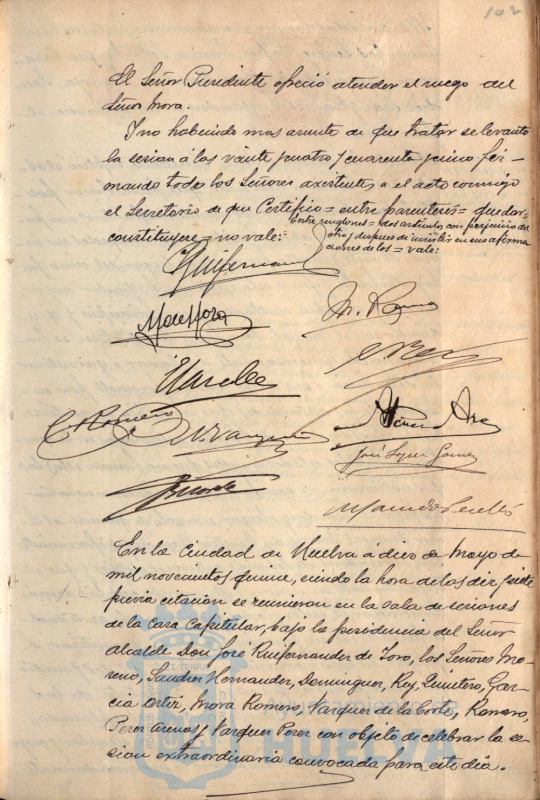 102
El Señor Presidente ofreció atender el ruego del
Señor Mora.
Y no habiendo mas asunto de que tratar se levantó
la sesion á las veinte y cuatro y cuarenta y cinco fir-
mando todos los Señores asistentes a el acto conmigo
el Secretario de que Certifico = entre parentesis = quedar-
constituyese = no vale:
Entre renglones = dos articulos con perjuicio de
otro y despues de insistir en sus afirma
ciones de los = vale:
M. Romero
José Lopez Gomez
En la Ciudad de Huelva á diez de Mayo de
mil novecientos quince, siendo la hora de las diez y siete
previa citacion se reunieron en la sala de sesiones
de la Casa Capitular, bajo la presidencia del Señor
alcalde Don José Ruifernandez de Toro, los Señores Mo-
reno, Sanchez Hernandez, Dominguez, Rey, Quintero, Gar-
cia Ortiz, Mora Romero, Vazquez de la Corte, Romero,
Perez Arenas y Vazquez Perez con objeto de celebrar la se-
sion extraordinaria convocada para este dia.
HUELVA